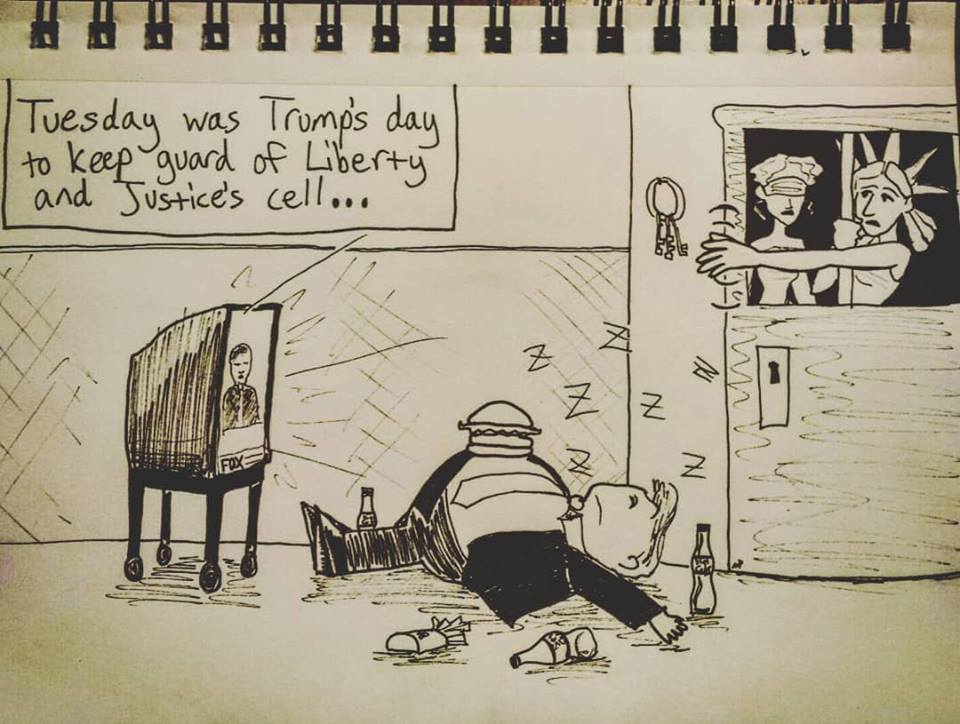 Tuesday was Trump's day
to keep guard of Liberty
and Justice's cell...
FOX
Z
Z
Z
Z
Z
Z
Z